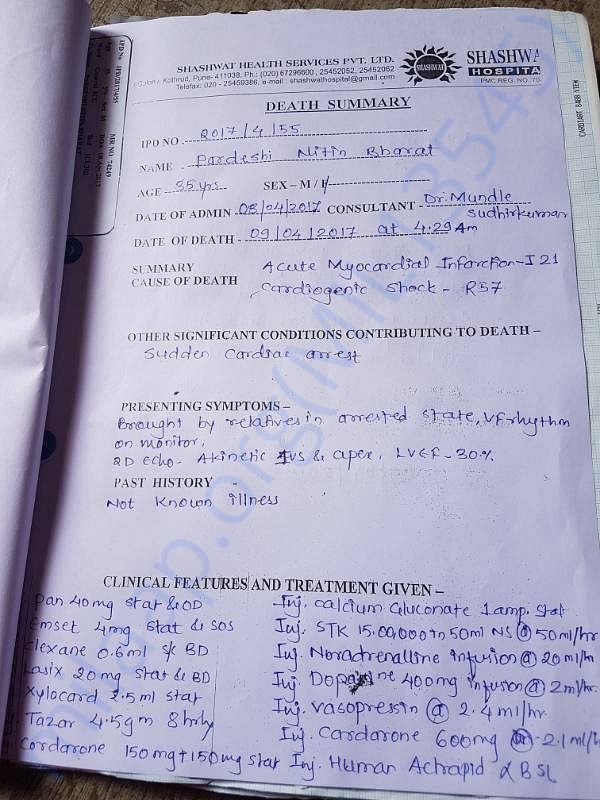 SHASHWAT HEALTH SERVICES PVT. LTD.
Kothrud, Pune- 411038, Ph.: (020) 67296600, 25452052, 25452062
Telefax: 020 - 25459386, e-mail : shashwathospital@gmail.com
SHASHWA
HOSPITA
PMC REG. NO.
DEATH SUMMARY
IPD NO. 2017/4/55
NAME - Pardeshi Nitin Bharat
AGE 35yrs SEX – M / F
DATE OF ADMIN 08/04/2017 CONSULTANT - Dr. Mundle
Sudhirkumar
DATE OF DEATH - 09/04/2017 at 4:29 Am
SUMMARY Acute Myocardial Infarction - I21
CAUSE OF DEATH Cardiogenic shock - R57
OTHER SIGNIFICANT CONDITIONS CONTRIBUTING TO DEATH –
Sudden Cardiac arrest
PRESENTING SYMPTOMS –
Brought by relatives in arrested state, VF rhythm
on monitor,
2D Echo - Akinetic IVS & apex, LVEF - 30%
PAST HISTORY -
Not Known illness
CLINICAL FEATURES AND TREATMENT GIVEN –
Pan 40mg stat & OD Inj. Calcium Gluconate 1 amp. stat
Emset 4mg stat & SOS Inj. STK 15,00,000 in 50ml NS @ 50ml/hr
Clexane 0.6ml s/c BD Inj. Noradrenalline infusion @ 20ml/h
Lasix 20mg stat & BD Inj. 400mg infusion @ 2ml/hr.
Xylocard 2.5ml stat Inj. Vasopressin @ 2.4ml/hr.
Tazar 4.5gm 8hrly Inj. Cardarone 600mg 2.1ml/h
Cordarone 150mg+150mg stat Inj. Human Actrapid BSL